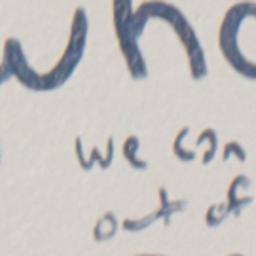 who
we can
out of